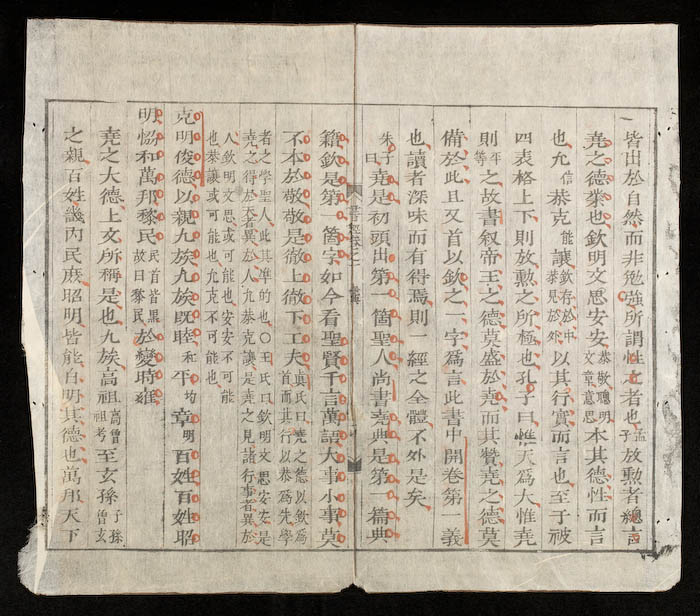 皆出於自然而非勉強所謂性之者也孟子放勲者總言
堯之德業也欽明文思安安恭敬聰明文章意思本其德性而言
也允信恭克能讓欽存於中恭見於外以其行實而言也至于被
四表格上下則放勲之所極也孔子曰惟天爲大惟堯
則平等之故書叙帝王之德莫盛於堯而其贊堯之德莫
備於此且又首以欽之一字爲言此書中開卷第一義
也讀者深味而有得焉則一經之全體不外是矣
朱子曰堯是初頭出第一箇聖人尚書堯典是第一篇典
書經卷之一
籍欽是第一箇字如今看聖賢千言萬語大事小事莫
不本於敬敬是徹上徹下工夫眞氏曰堯之德以欽爲首而其行以恭爲先學
者之學聖人此其準的也○王氏曰欽明文思安安是
堯之得於天者異於人允恭克讓是堯之見諸行事者異於
人欽明文思或可能也安安不可能
也恭讓或可能也允克不可能也
克明俊德以親九族九族既睦和平均章明百姓百姓昭
明恊和萬邦黎民民首皆黑故曰黎民於變時雍
堯之大德上文所稱是也九族高祖高曾祖考至玄孫子孫曾玄
之親百姓畿内民庶昭明皆能自明其德也萬邦天下